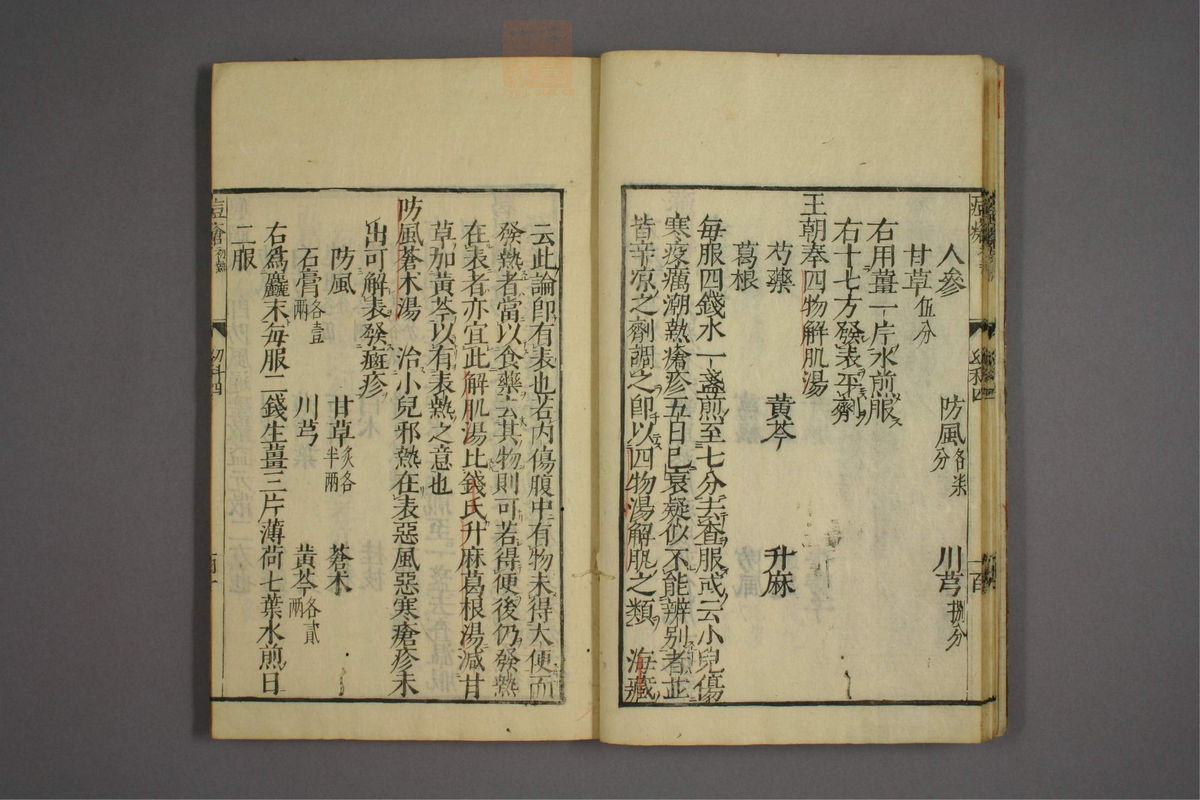 人參 防風各柒分 川芎捌分
甘草伍分
右用薑一片水煎服
右十七方發表平劑
王朝奉四物解肌湯
芍藥 黃芩 升麻
葛根
每服四錢水一盞煎至七分去查服或云小兒傷
寒疫癘潮熱瘡疹五日已衰疑似不能辨别者並
皆辛凉之劑調之卽以四物湯解肌之類 海藏
云此論卽有表也若内傷腹中有物未得大便而
發熱者當以食藥去其物則可若得便後仍發熱
在表者亦宜此解肌湯比錢氏升麻葛根湯減甘
草加黃芩以有表熱之意也
防風蒼木湯 治小兒邪熱在表惡風惡寒瘡疹未
出可解表發斑疹
防風 甘草炙各半兩 蒼木
石膏各壹兩 川芎 黃芩各貳兩
右爲麤末每服二錢生薑三片薄荷七葉水煎日
二服
痘瘡
幼科四